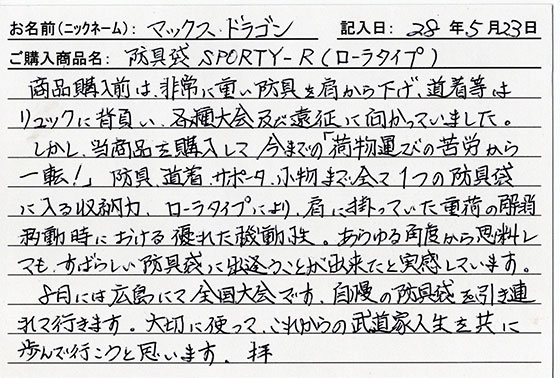 お名前(ニックネーム): マックス・ドラゴン 記入日: 28 年 5 月 23 日
ご購入商品名: 防具袋 SPORTY-R(ローラタイプ)
商品購入前は、非常に重い防具を肩から下げ、道着等は
リュックに背負い、各種大会及び遠征に向かっていました。
しかし、当商品を購入して、今までの「荷物運びの苦労から
一転!」防具、道着、サポータ、小物まで、全て1つの防具袋
に入る収納力、ローラタイプにより、肩に掛っていた重荷の解消
移動時における優れた機動性。あらゆる角度から思料し
ても、すばらしい防具袋に出逢うことが出来たと実感しています。
8月には広島にて全国大会です、自慢の防具袋を引き連
れて行きます。大切に使って、これからの武道家人生を共に
歩んで行こうと思います。 拝